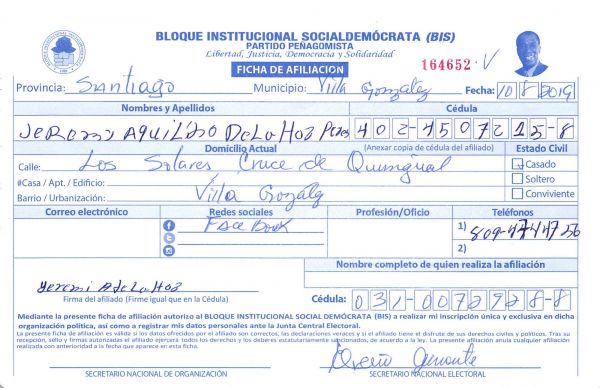 BLOQUE INSTITUCIONAL SOCIALDEMÓCRATA (BIS)
PARTIDO PEÑAGOMISTA
Libertad, Justicia, Democracia y Solidaridad
FICHA DE AFILIACION
164652
Provincia: Santiago Municipio: Villa González Fecha: 10/8/2019
Nombres y Apellidos Cédula
De La Hoz 402-4507215-8
Domicilio Actual (Anexar copia de cédula del afiliado) Estado Civil
Calle: Los Solares Cruce de Quinigual Casado
#Casa / Apt. / Edificio: Soltero
Barrio / Urbanización: Villa Gozalez Conviviente
Correo electrónico Redes sociales Profesión/Oficio Teléfonos
FaceBook 1) 809-
2)
Nombre completo de quien realiza la afiliación
Yeremi A De La Hoz
Firma del afiliado (Firme igual que en la Cédula) Cédula: 031-0072928-8
Mediante la presente ficha de afiliación autorizo al BLOQUE INSTITUCIONAL SOCIAL DEMÓCRATA (BIS) a realizar mi inscripción única y exclusiva en dicha
organización política, así como a registrar mis datos personales ante la Junta Central Electoral.
La presente ficha de afiliación es válida si los datos ofrecidos por el afiliado son correctos, las declaraciones veraces y si el afiliado tiene el disfrute de sus derechos civiles y políticos. Tras su
recepción, sello y firmas autorizadas el afiliado ejercerá todos los derechos y los deberes estatutariamente sancionados, de acuerdo a la ley. La presente afiliación anula cualquier afiliación
realizada con anterioridad a la fecha que aparece en esta ficha.
SECRETARIO NACIONAL DE ORGANIZACIÓN SECRETARIO NACIONAL ELECTORAL